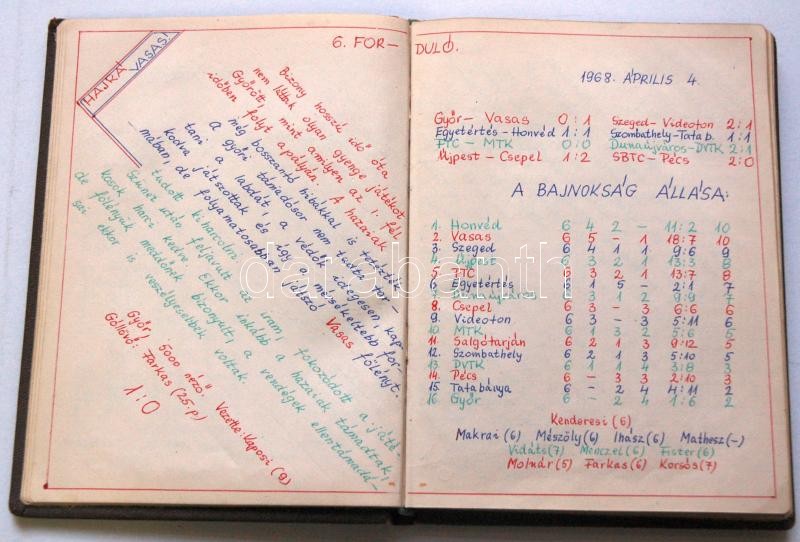 HAJRÁ
VASAS!
6. FOR-
Bizony hosszú idő óta
nem láttak olyan gyenge játékot
Győrött, mint amilyen az I. fél-
időben folyt a pályán. A hazaiak
még bosszantó hibákkal is tetézték
a győri támadósor nem tudta
tani a labdát, a védők idegesen, kap-
kodva játszottak és így a mérsékeltebb for-
mában, de folyamatosabban játszó Vasas
tudott kiharcolni. fölényt.
Szünet után feljavult az iram, fokozódott a játé-
kosok harci kedve. Ekkor inkább a hazaiak támadtak,
de fölényük meddőnek bizonyult, a vendégek ellentámadá-
sai ekkor is veszélyesebbek voltak.
Győr, 5000 néző. Vezette: Kaposi (9)
Góllövő: Farkas (25. p)
1:0
DULÓ.
1968. ÁPRILIS 4.
Győr - Vasas 0:1 Szeged - Videoton 2:1
Egyetértés - Honvéd 1:1 Szombathely - Tatab. 1:1
FTC - MTK 0:0 Dunaújváros - DVTK 2:1
Újpest - Csepel 1:2 SBTC - Pécs 2:0
A BAJNOKSÁG ÁLLÁSA:
1. Honvéd 6 4 2 - 11:2 10
2. Vasas 6 5 - 1 18:7 10
3. Szeged 6 4 1 1 9:6 9
4. Újpest 6 3 2 1 13:3 8
5. FTC 6 3 2 1 13:7 8
6. Egyetértés 6 1 5 - 2:1 7
7. Dunaújváros 6 3 1 2 9:9 7
8. Csepel 6 3 - 3 6:6 6
9. Videoton 6 3 - 3 5:11 6
10. MTK 6 1 3 2 5:6 5
11. Salgótarján 6 2 1 3 9:12 5
12. Szombathely 6 2 1 3 5:10 5
13. DVTK 6 1 1 4 3:8 3
14. Pécs 6 - 3 3 2:10 3
15. Tatabánya 6 - 2 4 4:11 2
16. Győr 6 - 2 4 1:6 2
Kenderesi (6)
Makrai (6) Mészöly (6) Ihász (6) Mathesz (-)
Vidáts (7) Menczel (6) Fister (6)
Molnár (5) Farkas (6) Korsós (7)
darabanth